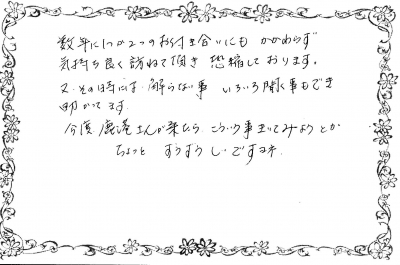 数年に1つか2つのお付き合いにも かかわらず
気持ち良く訪ねて頂き 恐縮しております。
又、その時には 解らない事 いろいろ聞く事もでき
助かってます。
今度 鹿庵さんが来たら こういう事きいてみようとか
ちょっと ずうずうしいですネ。